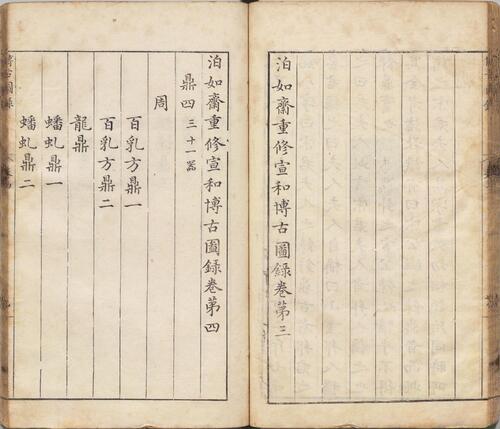 泊如齋重修宣和博古圖録卷第三
泊如齋重修宣和博古圖録卷第四
鼎四 三十一器
周
百乳方鼎一
百乳方鼎二
龍鼎
蟠虬鼎一
蟠虬鼎二